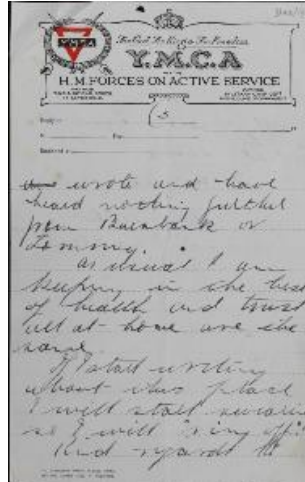 Y.M.C.A
H.M. FORCES ON ACTIVE SERVICE
5
wrote and have
heard nothing further
from Burnbank or
Tommy.
as usual I am
keeping in the best
of health and trust
all at home are the
same.
If I start writing
about this place
I will start swearing
so I will "ring off"
Kind regards to